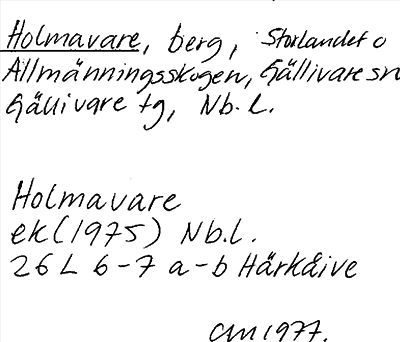 Holmavare, berg, Storlandet o
Allmänningsskogen, Gällivare sn
Gällivare tg, Nb. l.
Holmavare
ek (1975) Nb.l.
26 L 6-7 a-b Härkåive
CM 1977.